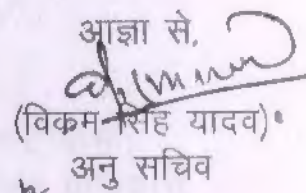 आज्ञा से,
(विक्रम सिंह यादव)
अनु सचिव